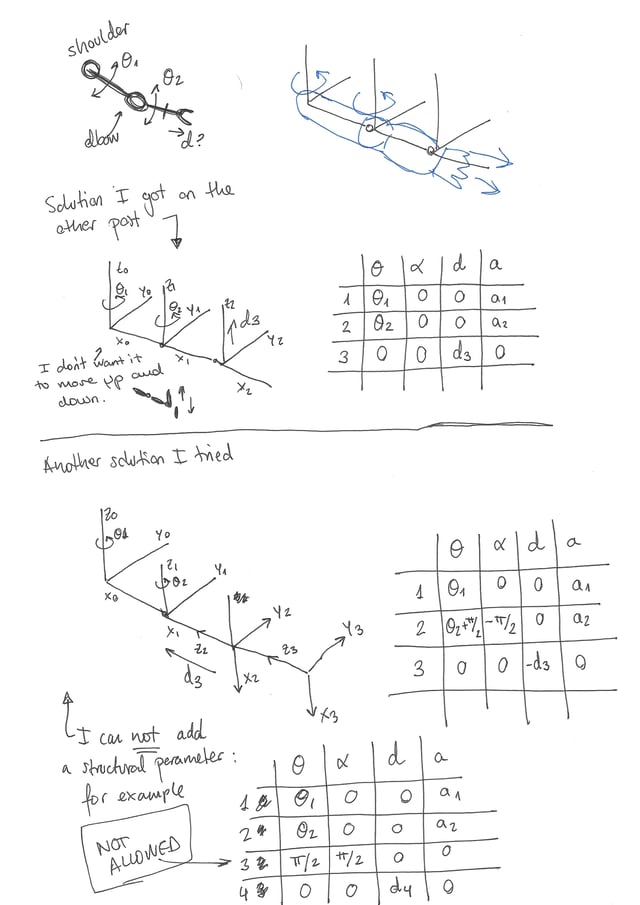 shoulder
θ1
θ2
elbow
d?
Solution I got on the
other post
z0
θ1
y0
x0
z1
θ2
y1
x1
z2
d3
y2
x2
I don't want it
to move up and
down.
θ α d a
1 θ1 0 0 a1
2 θ2 0 0 a2
3 0 0 d3 0
Another solution I tried
z0
θ1
y0
x0
z1
θ2
y1
x1
z2
y2
x2
d3
z3
y3
x3
θ α d a
1 θ1 0 0 a1
2 θ2+π/2 -π/2 0 a2
3 0 0 -d3 0
I can not add
a structural perameter:
for example
NOT
ALLOWED
θ α d a
1 θ1 0 0 a1
2 θ2 0 0 a2
3 π/2 π/2 0 0
4 0 0 d4 0